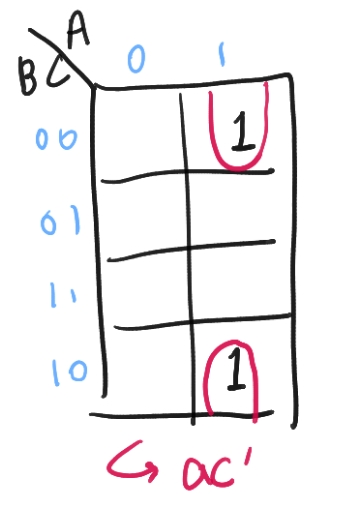 A
BC 0 1
00 1
01
11
10 1
↪ ac'